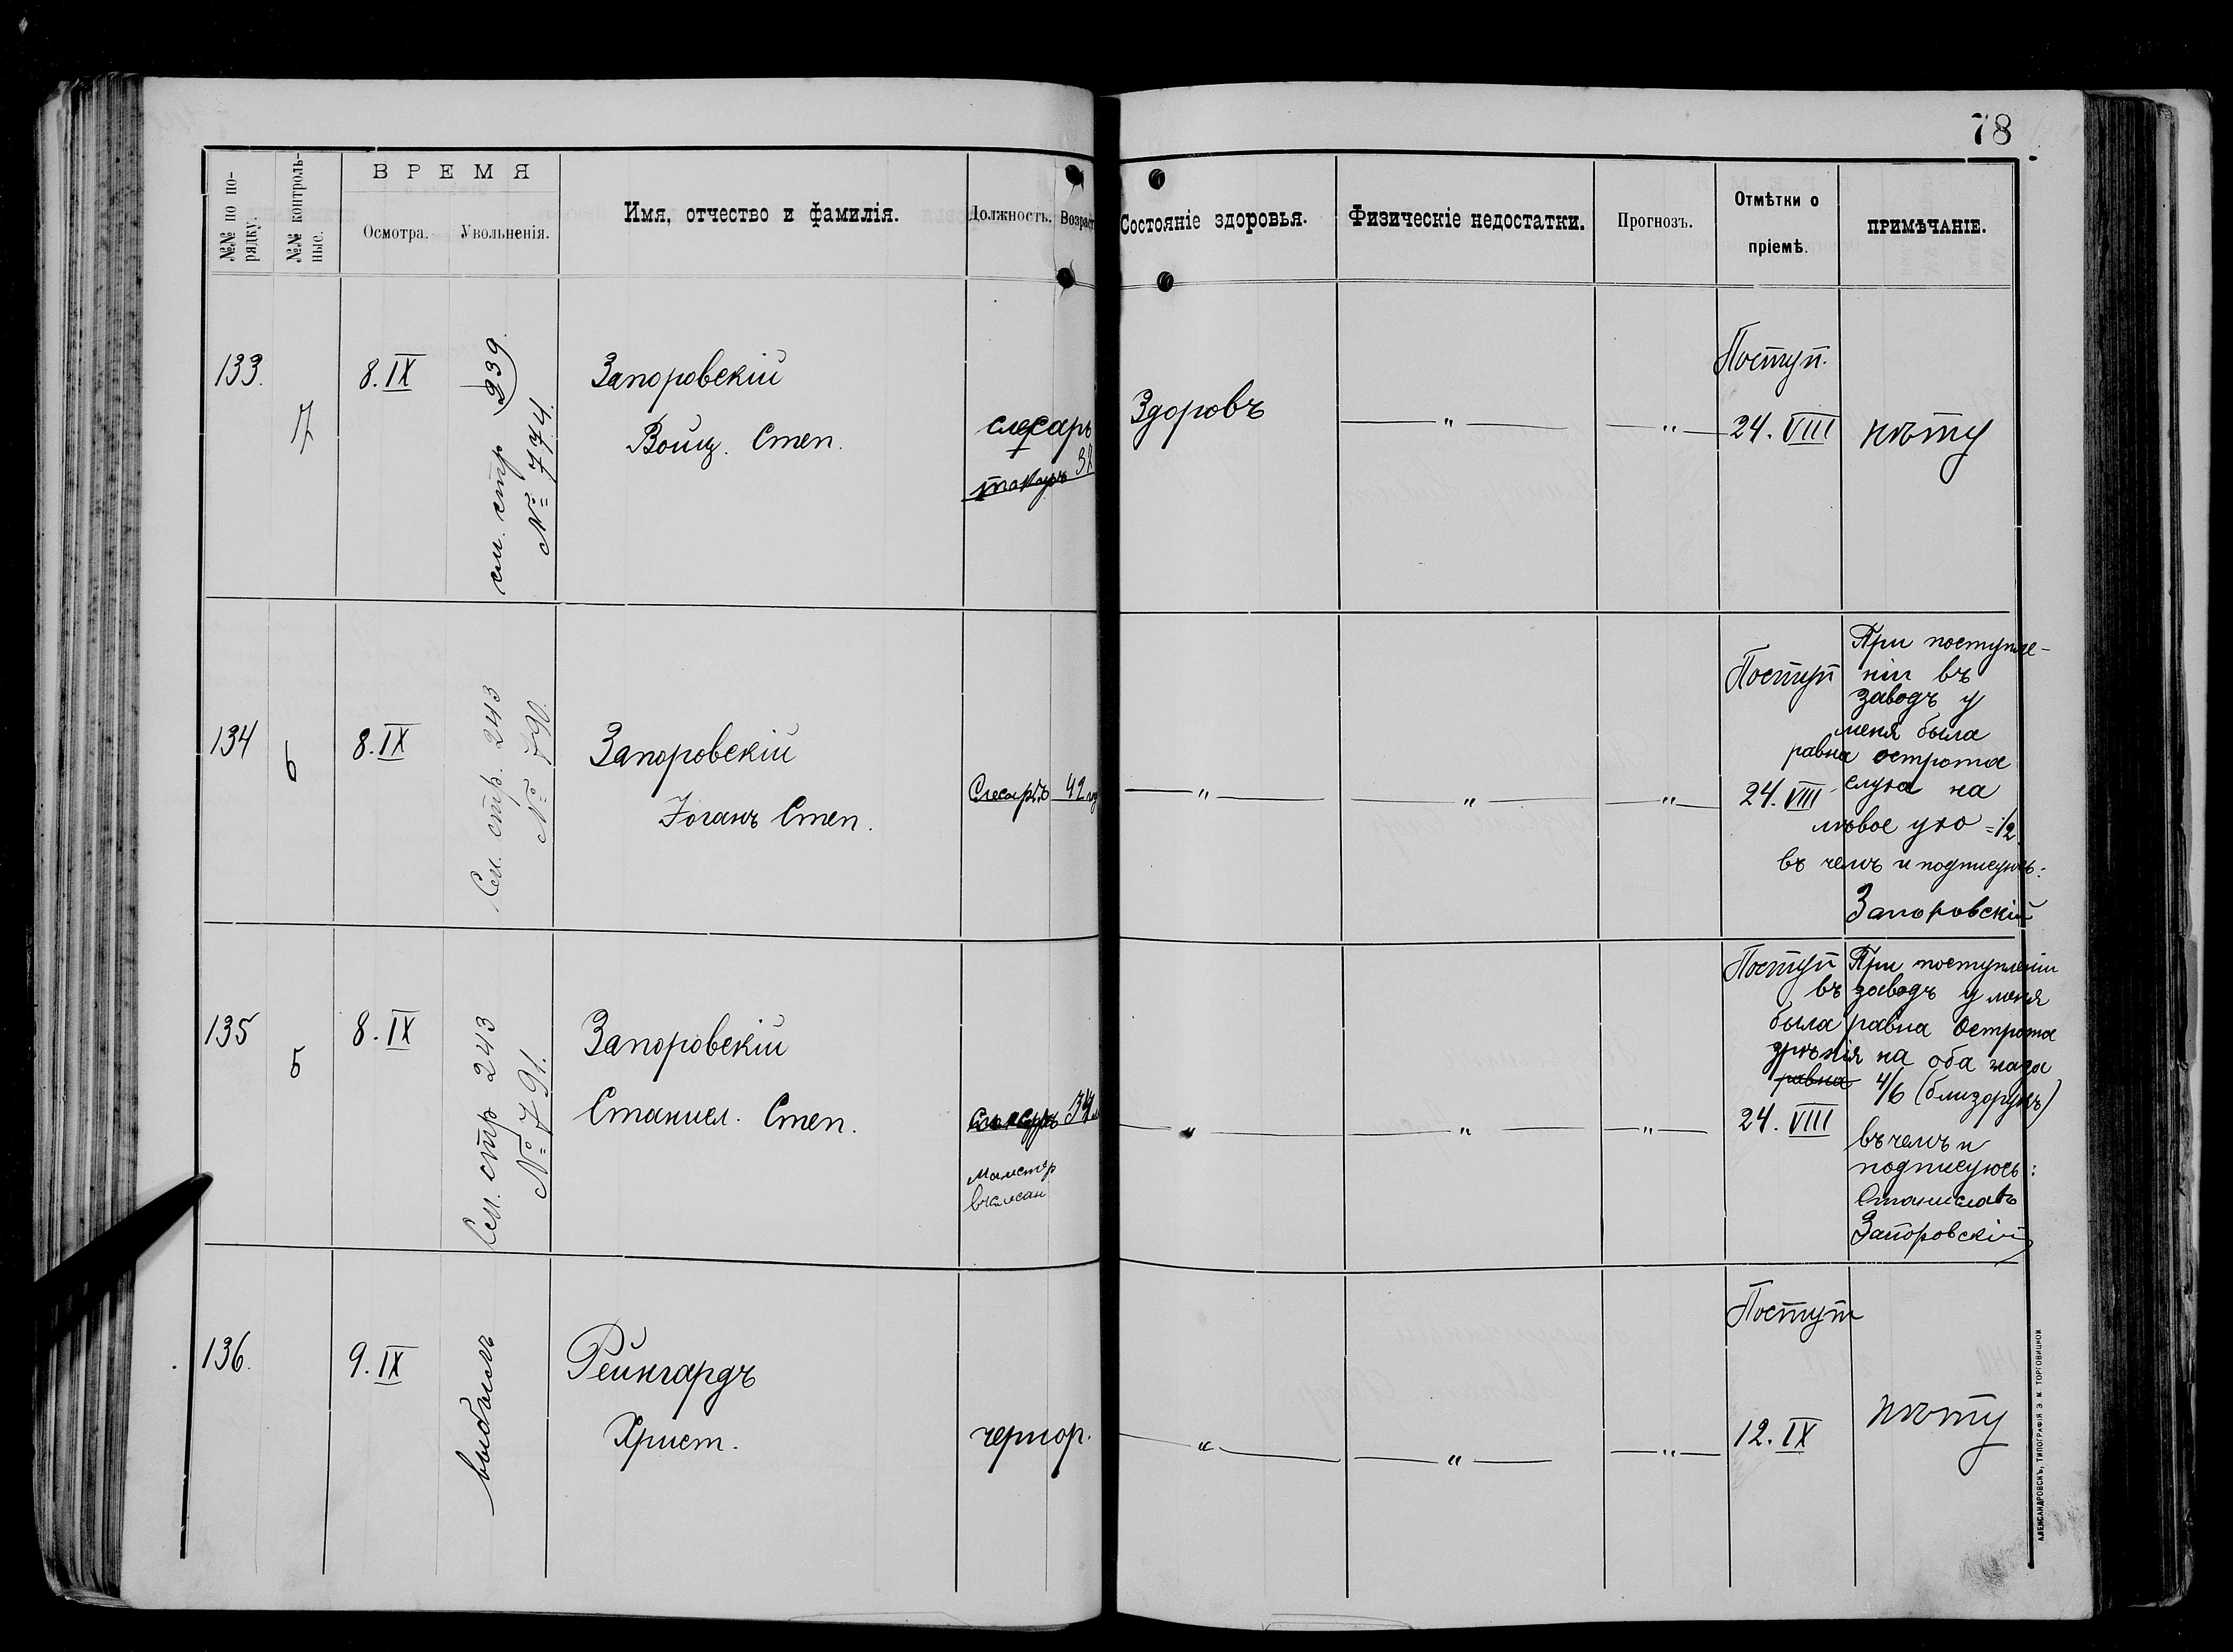 78
№№ по по-
рядку.
№№ контроль-
ные.
ВРЕМЯ
Осмотра.
Увольненія.
Имя, отчество и фамилія.
Должность.
Возраст
Состояніе здоровья.
Физическіе недостатки.
Прогнозъ.
Отмѣтки о
пріемѣ.
ПРИМѢЧАНІЕ.
133.
7
8.IX
см. стр 239.
№ 774.
Запоровскій
Войц. Степ.
слесарь
токарь
Здоровъ
— " —
— " —
Поступ.
24. VIII
нѣту
134
6
8.IX
См. стр. 243
№ 790.
Запоровскій
Іоганъ Степ.
Слесарь
42
— " —
— " —
— " —
Поступ
24. VIII
При поступле-
ніи въ
заводъ у
меня была
равна острота
слуха на
лѣвое ухо = 1/2
въ чемъ и подписуюсь:
Запоровскій
135
5
8.IX
См. стр 243
№ 791.
Запоровскій
Станисл. Степ.
34
— " —
— " —
— " —
Поступ
24. VIII
При поступленіи
въ заводъ у меня
была равна Острота
зрѣнія на оба глаза
равна 4/6 (близорукъ)
въ чемъ и
подписуюсь:
Станиславъ
Запоровскій
136.
9.IX
выбылъ
Рейнгардъ
Христ.
чернор.
— " —
— " —
— " —
Поступ
12. IX
нѣту
АЛЕКСАНДРОВСКЪ, ТИПОГРАФІЯ Э. М. ТОРГОВИЦКОЙ